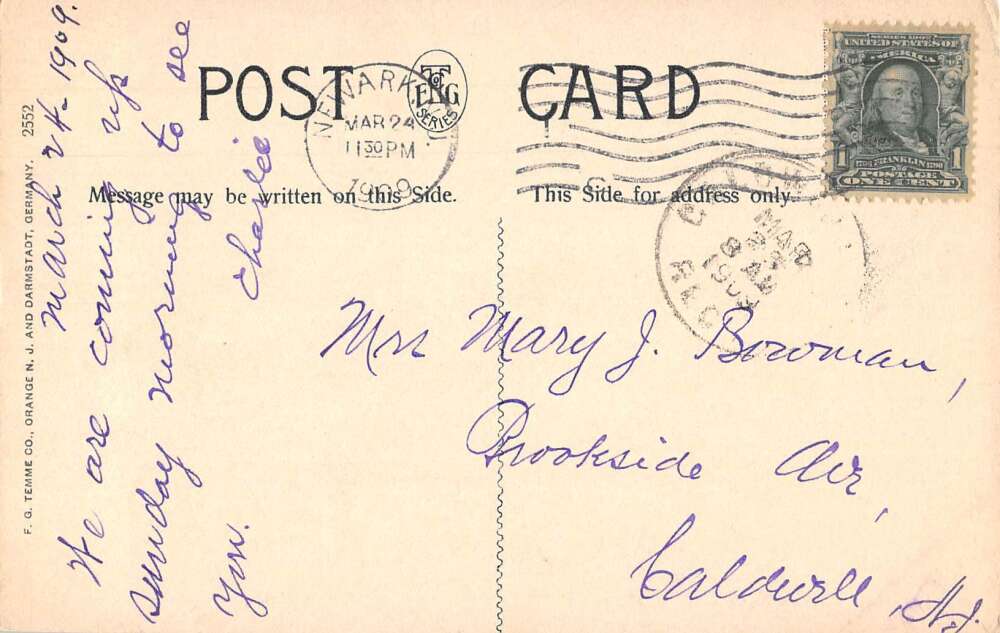 POST CARD
T Co
F&G
SERIES
NEWARK
MAR 24
11 30 PM
1909
SERIES 1902
UNITED STATES OF
AMERICA
1 FRANKLIN 1
POSTAGE
ONE CENT
Message may be written on this Side.
This Side for address only.
MAR
8 A
190
REC'D
F. G. TEMME CO., ORANGE N. J. AND DARMSTADT, GERMANY. 2552
March 24- 1909.
We are coming up
sunday morning to see
you. Charlie
Mrs Mary J. Bowman,
Brookside Av,
Caldwell, N.J.